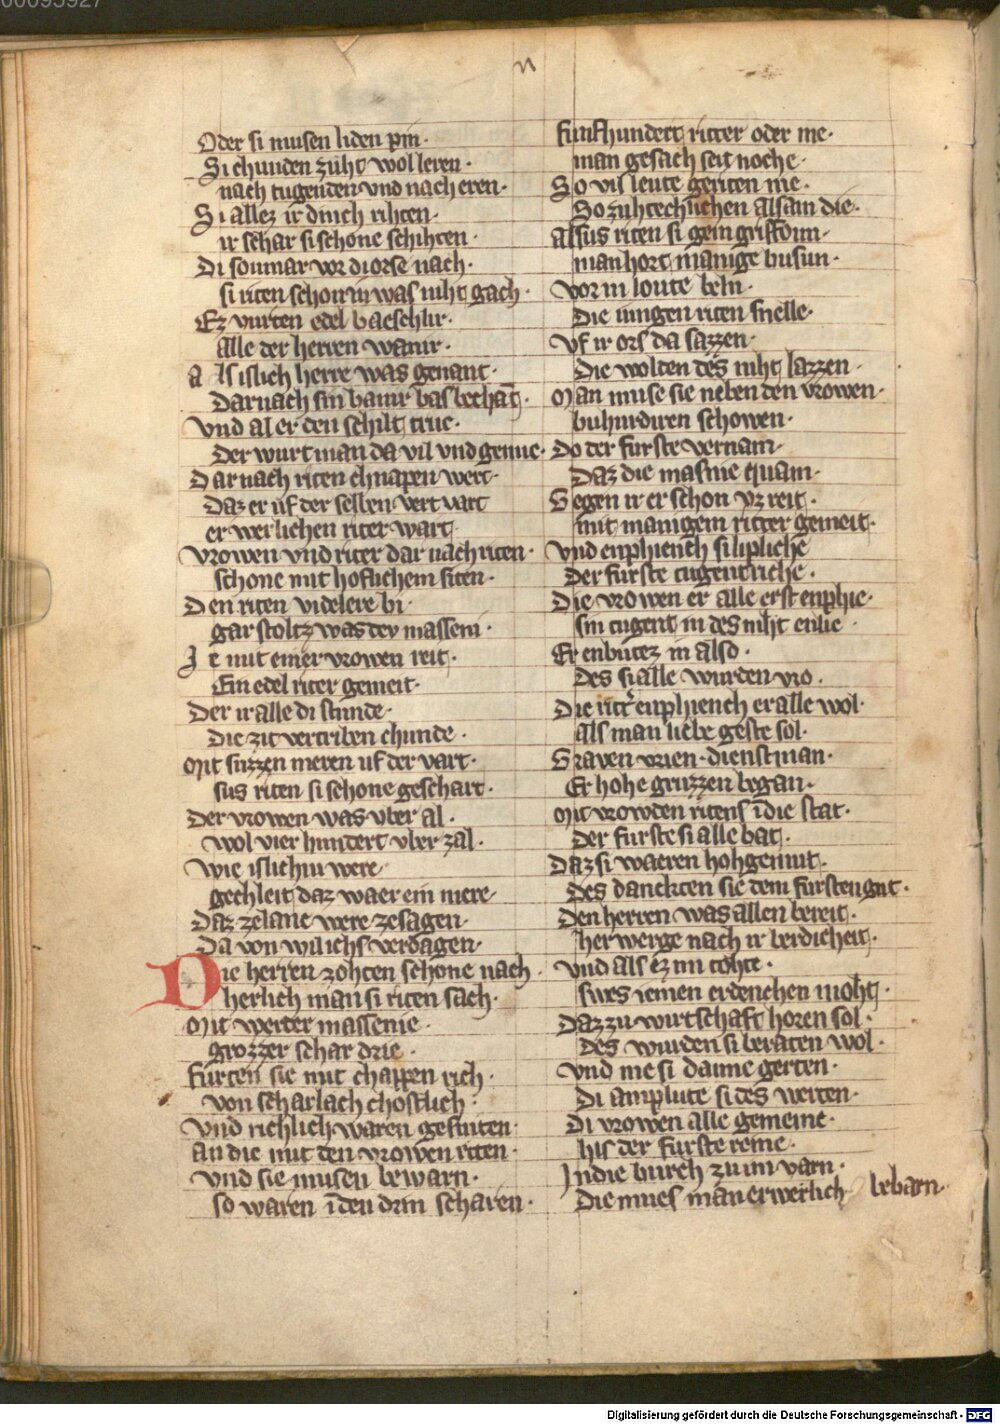 00095927
n
Oder si musen liden pin·
Si chunden zuht wol leren·
nach tugenden vnd nach eren·
Si allez ir dinch rihten·
ir schar si schone schihten·
Di soumar vor di orse nach·
si riten schon in was niht gach·
Ez vurten edel baeschlir·
alle der herren wanir·
als islich herre was genant·
Darnach sin banir was bechant·
Vnd al er den schilt true·
Der wurt man da vil vnd genue·
Dar nach riten chnapen wert·
Daz er uf der selben vert vart
er werlichen riter wart
Vrowen vnd riter dar nach riten·
schone mit hoflichem siten·
Den riten videlere bi·
gar stoltz was dev masseni·
Ie mit einer vrowen reit·
Ein edel riter gemeit·
Der ir alle di stunde·
Die zit vertriben chunde·
Mit suzzen meren uf der vart·
sus riten si schone geschart·
Der vrowen was vber al·
wol vier hundert vber zal·
Wie islichiu were
gechleit daz waer ein mere·
Daz zelane were zesagen·
Da von wil ichs verdagen·
Die herren zohten schone nach·
herlich man si riten sach·
Mit werter massenie·
grozzer schar drie·
Furten sie mit chappen rich·
von scharlach chostlich·
Vnd richlich waren gesniten·
An die mit den vrowen riten·
Vnd sie musen bewarn·
so waren in den drin scharen·
funfhundert ritter oder me·
man gesach seit noch e·
So vil leute geriten nie·
So zuhtechlichen alsam die·
Alsus riten si gein griffoun·
man hort manige busun·
Vor in loute beln·
Die iungen riten snelle·
Vf ir ors da sazzen·
Die wolden des niht lazzen·
Man muse sie neben den vrowen·
buhurdiren schowen·
Do der furste vernam·
Daz die masnie quam·
Gegen ir er schon vz reit·
mit manigem ritter gemeit·
Vnd enphiench si liplichē
Der furste tugentriche·
Die vrowen er alle erst enphie·
sin tugent in des niht enlie·
Er enbutez in also·
Des si alle wurden vro·
Die ritr enphiench er alle wol·
Als man liebe geste sol·
Graven vrien·dienstman·
Er hohe gruzzen began·
Mit vrowden ritens in die stat·
Der furste si alle bat·
Daz si waeren hohgemut·
Des danckten sie dem fursten gut·
Den herren was allen bereit·
herwerge nach ir berdicheit·
Vnd als ez im tohte·
swes iemen erdenchen moht·
Daz zu wirtschaft horen sol·
Des wurden si beraten wol·
Vnd me si danne gerten·
Di amplute si des werten·
Di vrowen alle gemeine·
his der furste reine·
In die burch zu im varn·
Die mues man erwerlich bebarn·
Digitalisierung gefördert durch die Deutsche Forschungsgemeinschaft - DFG